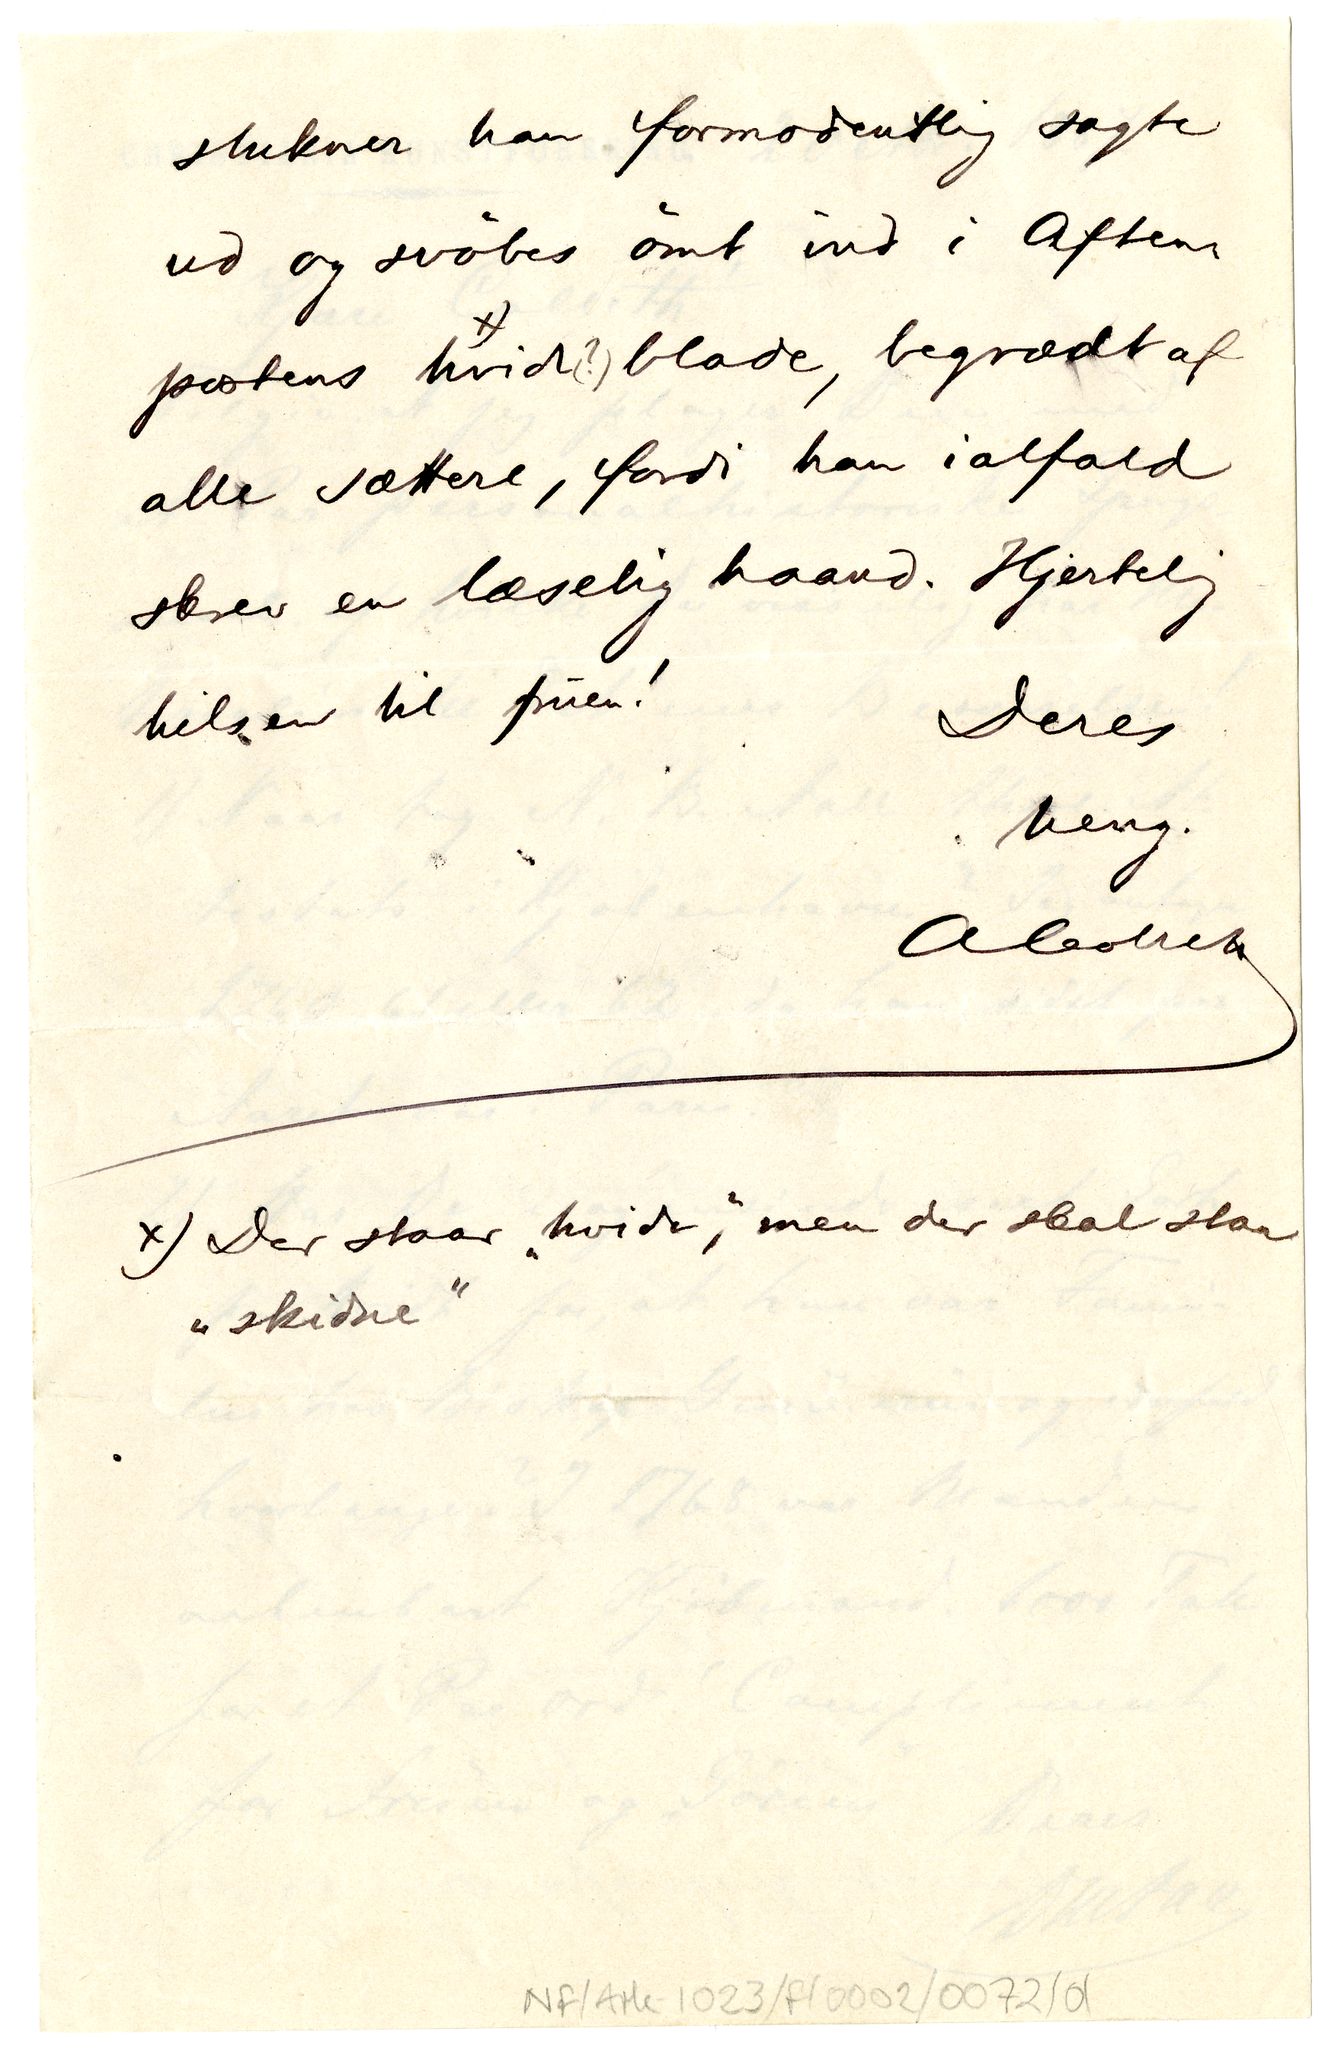 slukner han formodentlig sagte
ud og svöbes ömt ind i Aften-
postens hvide x) (?) blade, begrædt af
alle sættere, fordi han ialfald
skrev en læselig haand. Hjertelig
hilsen til frūen!
Deres
heng.
x) Der staar „hvide“, men der skal staa
„skidne“
NF/Ark-1023/F/0002/0072/d